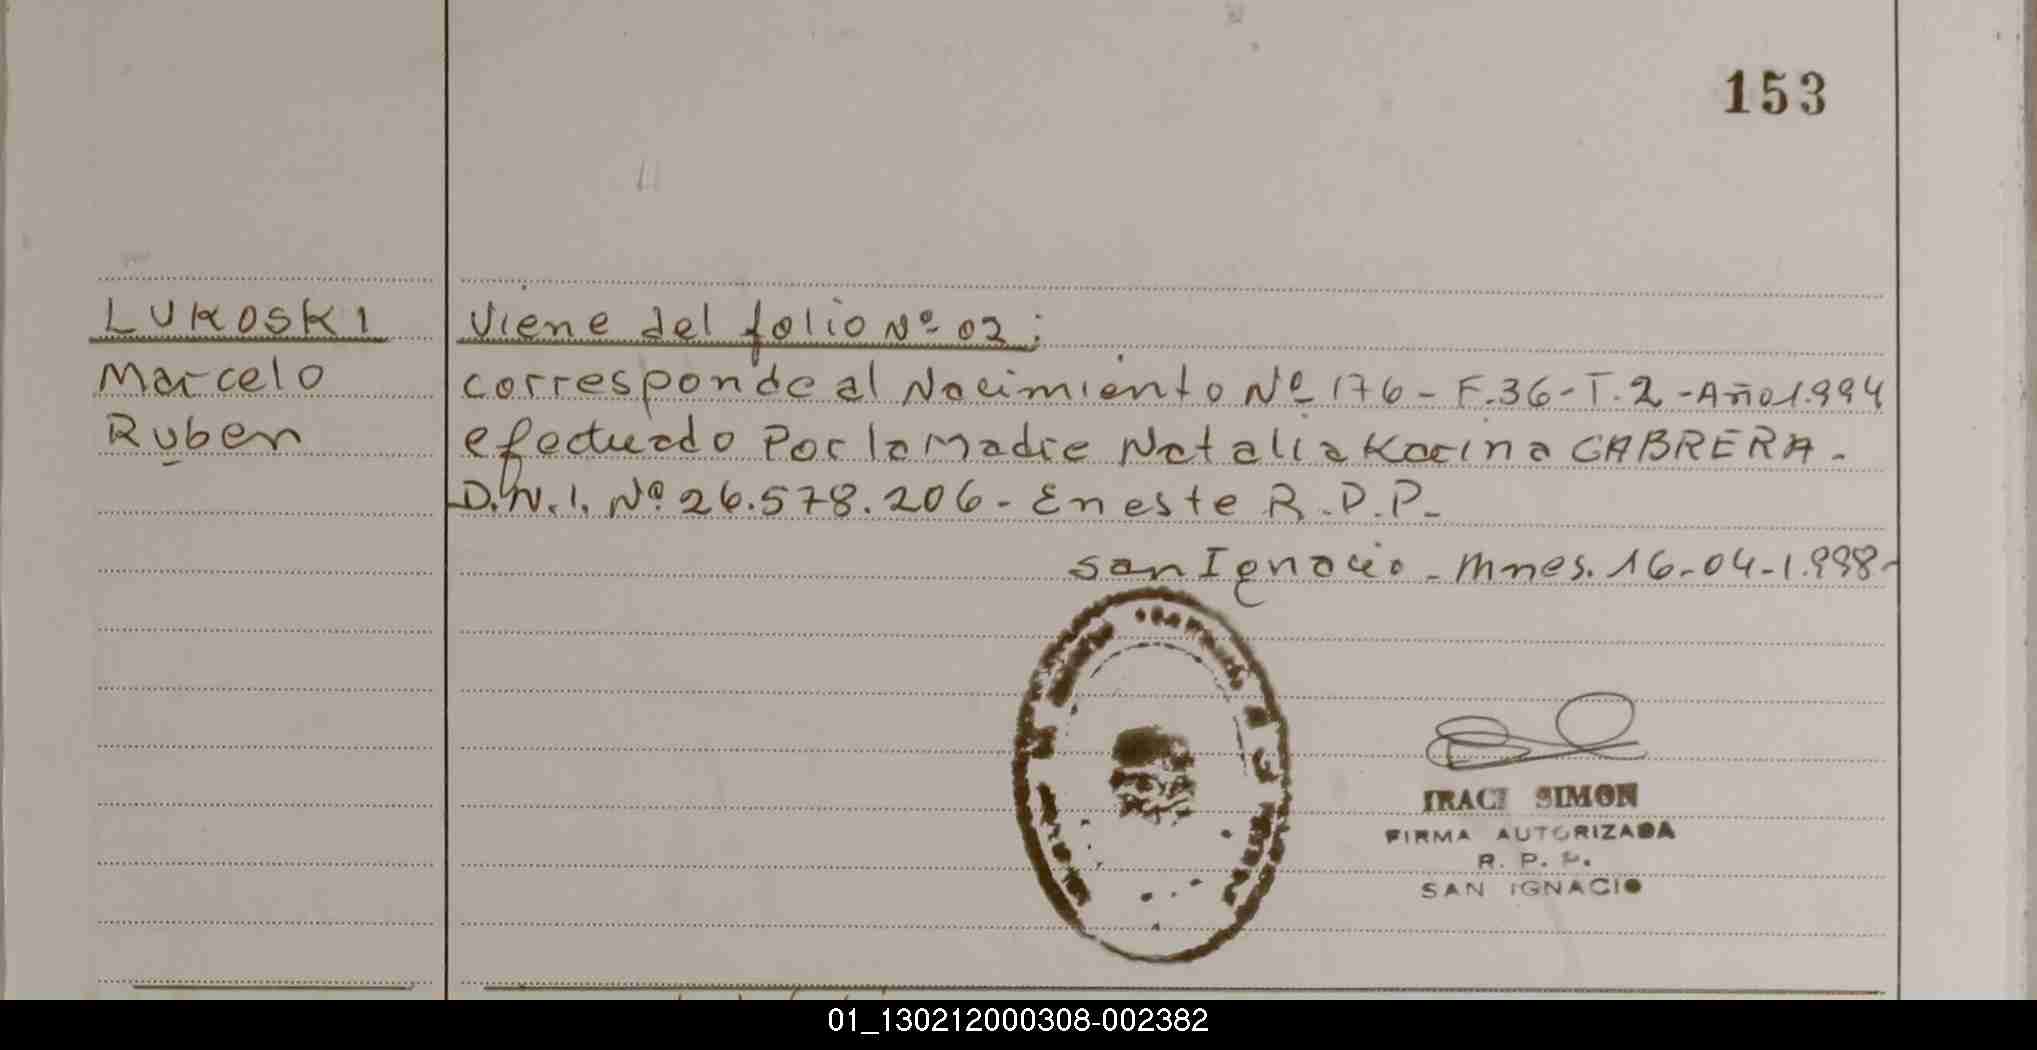 153
LUKOSKI
Marcelo
Ruben
Viene del folio Nº 02:
corresponde al Nacimiento Nº 176 - F.36 - T.2 - Año 1.994
efectuado Por la Madre Natalia Karina CABRERA -
D.N.I. Nº 26.578.206 - En este R.D.P.
San Ignacio - Mnes. 16-04-1.998-
IRACI SIMON
FIRMA AUTORIZADA
R. P. P.
SAN IGNACIO
01_130212000308-002382